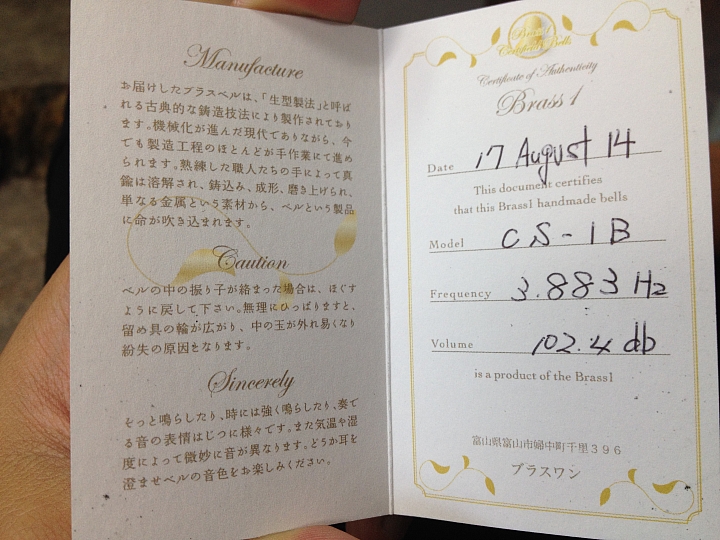 Manufacture
お届けしたブラスベルは、「生型製法」と呼ば
れる古典的な鋳造技法により製作されており
ます。機械化が進んだ現代でありながら、今
でも製造工程のほとんどが手作業にて進め
られます。熟練した職人たちの手によって真
鍮は溶解され、鋳込み、成形、磨き上げられ、
単なる金属という素材から、ベルという製品
に命が吹き込まれます。
Caution
ベルの中の振り子が絡まった場合は、ほぐす
ように戻して下さい。無理にひっぱりますと、
留め具の輪が広がり、中の玉が外れ易くなり
紛失の原因となります。
Sincerely
そっと鳴らしたり、時には強く鳴らしたり、奏で
る音の表情はじつに様々です。また気温や湿
度によって微妙に音が異なります。どうか耳を
澄ませベルの音色をお楽しみください。
Brass1
Certificate Bells
Certificate of Authenticity
Brass 1
Date 17 August 14
This document certifies
that this Brass1 handmade bells
Model CS-1B
Frequency 3.883 Hz
Volume 102.4 db
is a product of the Brass1
富山県富山市婦中町千里396
ブラスワン